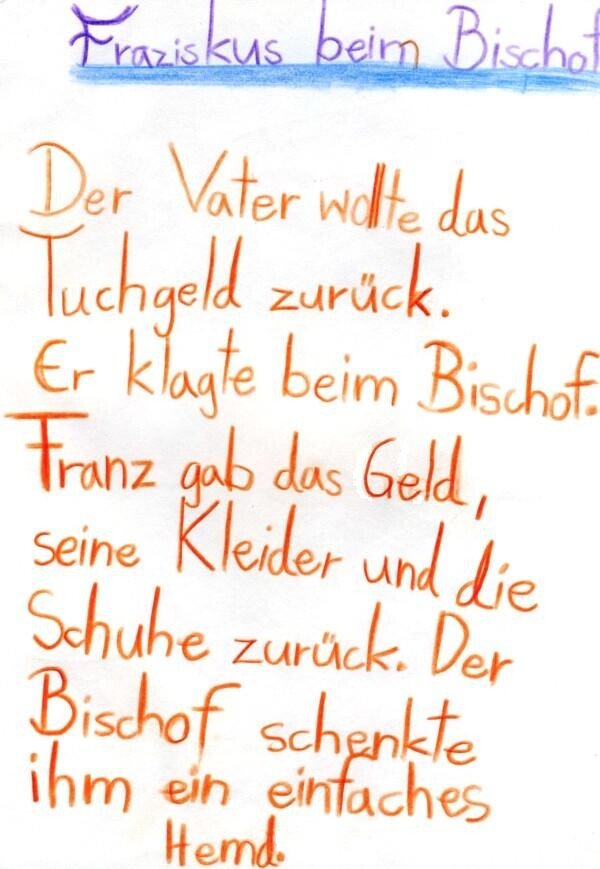 Fraziskus beim Bischof
Der Vater wollte das
Tuchgeld zurück.
Er klagte beim Bischof.
Franz gab das Geld,
seine Kleider und die
Schuhe zurück. Der
Bischof schenkte
ihm ein einfaches
Hemd.